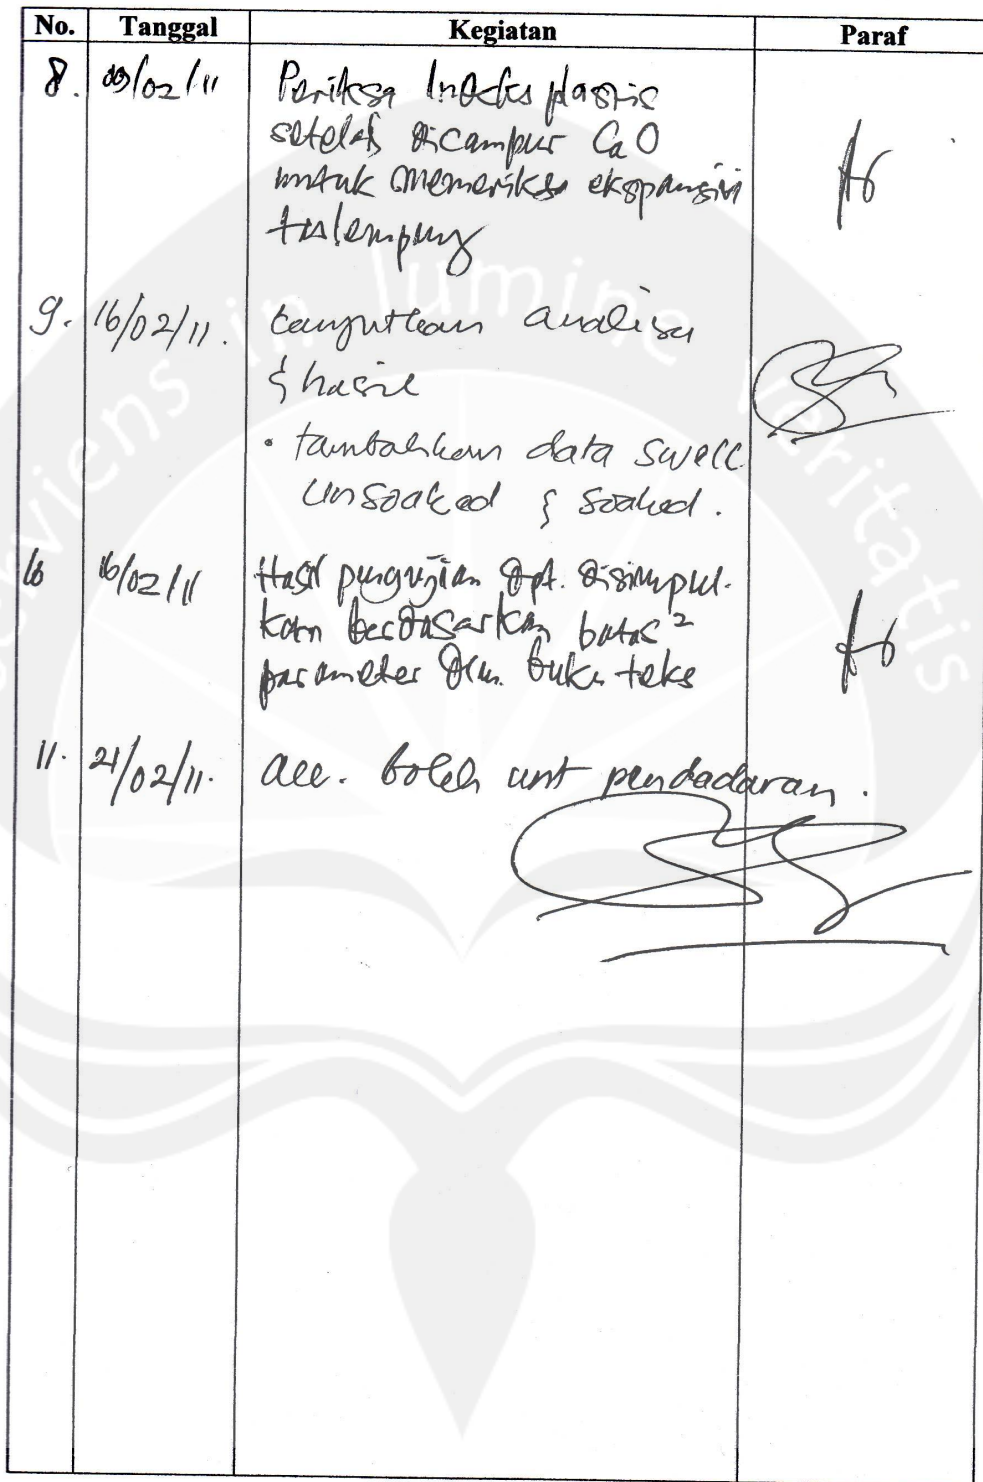 No. Tanggal Kegiatan Paraf
8. 09/02/11 Periksa Indeks plastis
setelah dicampur CaO
untuk memeriksa ekspansivi
tas lempung
9. 16/02/11. Lanjutkan analisa
& hasil
• tambahkan data swell
unsoaked & soaked.
10 16/02/11 Hasil pengujian dpt. disimpul-
kan berdasarkan batas²
parameter dlm. buku teks
11. 21/02/11. acc. boleh unt pendadaran.
serviens in lumine veritatis